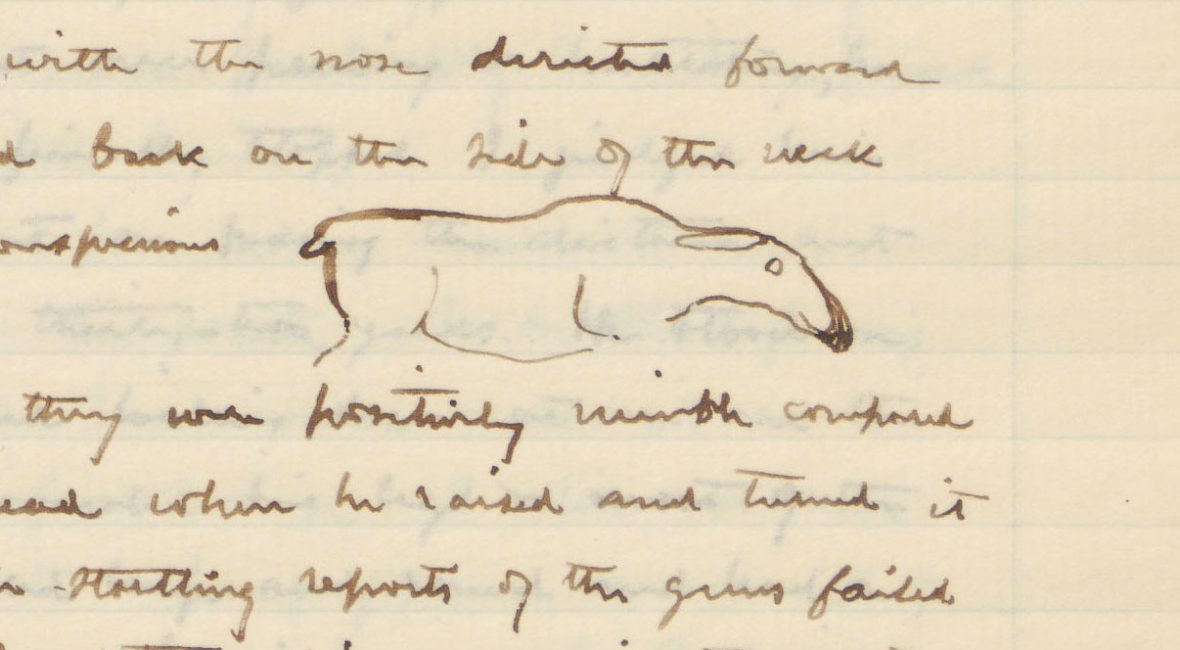 with the nose directed forward
back on the side of the neck
they were positively nimble compared
when he raised and turned it
startling reports of the guns failed